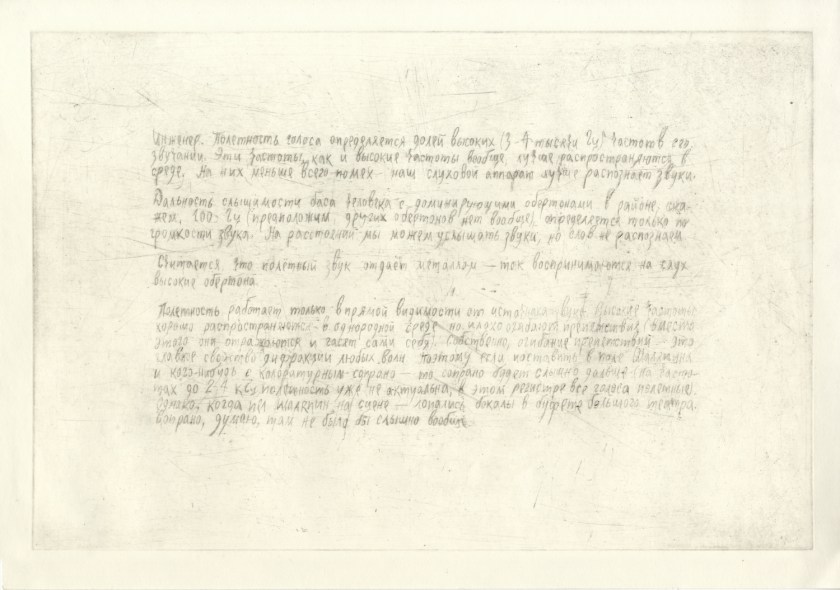 Инженер. Полетность голоса определяется долей высоких (3-4 тысячи Гц) частот в его
звучании. Эти частоты, как и высокие частоты вообще, лучше распространяются в
среде. На них меньше всего помех - наш слуховой аппарат лучше распознает звуки.
Дальность слышимости баса человека с доминирующими обертонами в районе, ска-
жем, 100 Гц (предположим, других обертонов нет вообще) определяется только по
громкости звука. На расстоянии мы можем услышать звуки, но слов не распознаем
Считается, что полётный звук отдаёт металлом — так воспринимаются на слух
высокие обертона.
Полетность работает только в прямой видимости от источника звука. Высокие частоты
хорошо распространяются в однородной среде, но плохо огибают препятствия (вместо
этого они отражаются и гасят сами себя). Собственно, огибание препятствий — это
главное свойство дифракции любых волн. Поэтому если поставить в поле Шаляпина
и кого-нибудь с колоратурным сопрано — то сопрано будет слышно дальше (на часто-
тах до 2-4 кГц полетность уже не актуальна, в этом регистре все голоса полетные).
Однако, когда пел Шаляпин на сцене — лопались бокалы в буфете Большого театра.
Сопрано, думаю, там не было бы слышно вообще.